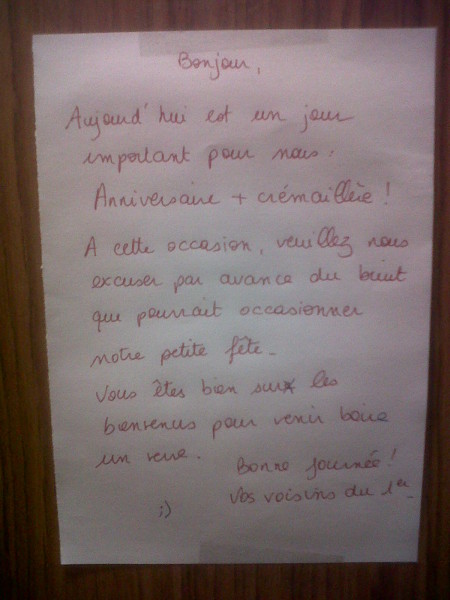 Bonjour,
Aujourd'hui est un jour
important pour nous.
Anniversaire + crémaillère !
A cette occasion, veuillez nous
excuser par avance du bruit
que pourrait occasionner
notre petite fête.
Vous êtes bien sur les
bienvenus pour venir boire
un verre.
Bonne journée !
Vos voisins du 1er
;)